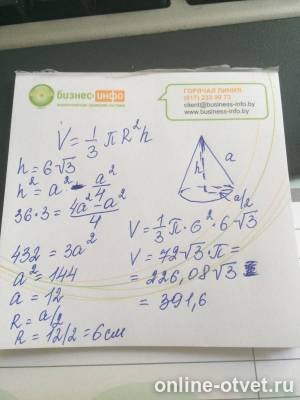 бизнес-инфо
ГОРЯЧАЯ ЛИНИЯ:
client@business-info.by
www.business-info.by
V = 1/3 πR²h
h = 6√3
h² = a² - a²/4
36·3 = (4a² - a²)/4
432 = 3a²
a² = 144
a = 12
R = a/2
R = 12/2 = 6 см
h
a
a/2
V = 1/3 π·6²·6√3
V = 72√3 π =
= 226,08√3
= 391,6
online-otvet.ru